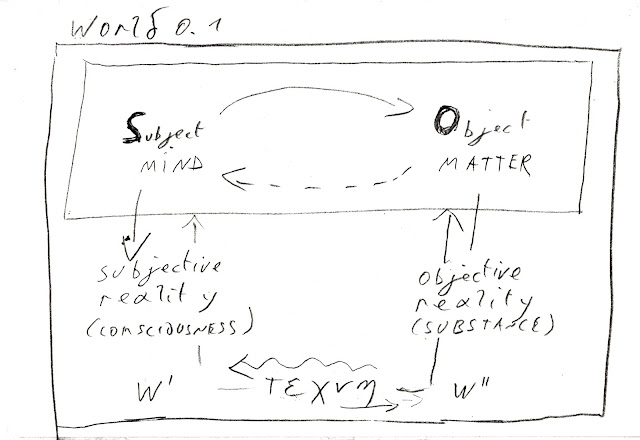 World 0.1
Subject
MIND
Object
MATTER
subjective
reality
(CONSCIOUSNESS)
objective
reality
(SUBSTANCE)
W'
ΤΕΧνη
W"